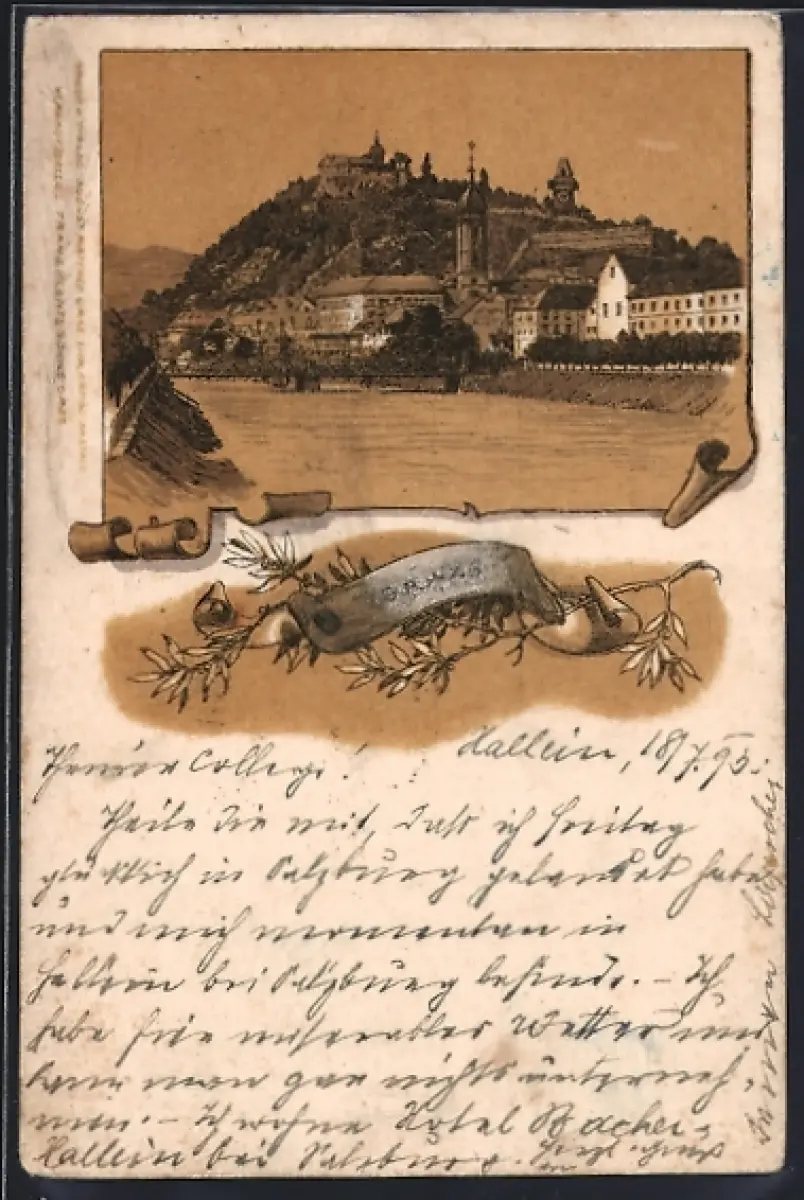 GRAZ
Hallein, 18/7.95.
Theurer College!
Theile dir mit, daß ich Freitag
glücklich in Salzburg gelandet habe
und mich momentan in
Hallein bei Salzburg befinde. – Ich
habe hier miserables Wetter und
kann man gar nichts unterneh-
men. – Ich wohne Hotel Bacher,
Hallein bei Salzburg. Herzl. Gruß